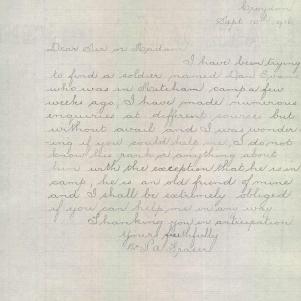 Croydon
Sept 10th 1916
Dear Sir or Madam
I have been trying
to find a soldier named Dan Evans
who was in Witcham camp a few
weeks ago, I have made numerous
enquiries at different sources but
without avail and I was wonder
ing if you could help me, I do not
know his rank or anything about
him with the exception that he is in
camp, he is an old friend of mine
and I shall be extremely obliged
if you can help me in any way
Thanking you in anticipation
Yours faithfully
A Fraser